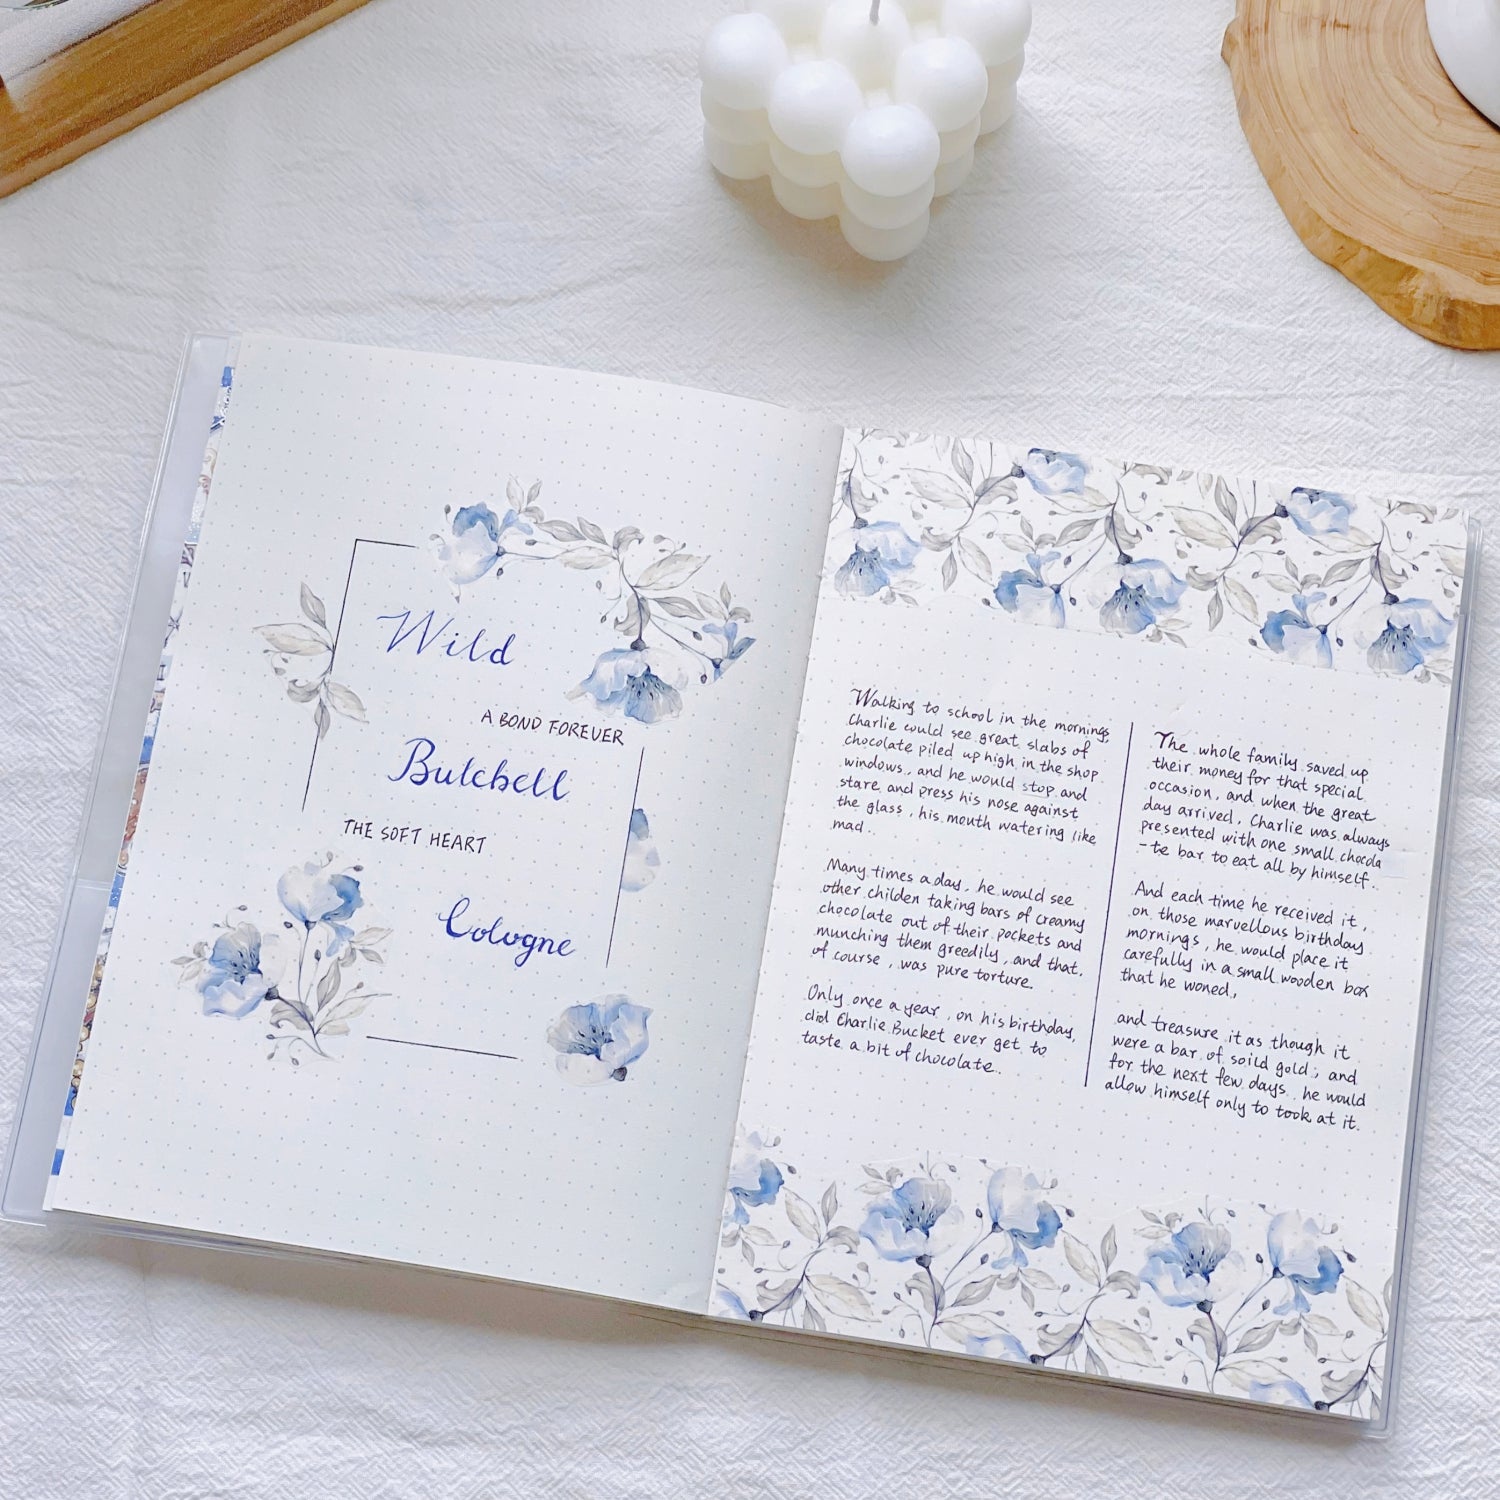 Wild
A BOND FOREVER
Bulebell
THE SOFT HEART
Cologne
Walking to school in the mornings,
Charlie could see great slabs of
chocolate piled up high in the shop
windows, and he would stop and
stare and press his nose against
the glass, his mouth watering like
mad..
Many times a day, he would see
other childen taking bars of creamy
chocolate out of their pockets and
munching them greedily, and that,
of course, was pure torture.
Only once a year, on his birthday,
did Charlie Bucket ever get to
taste a bit of chocolate..
The whole family saved up
their money for that special
occasion, and when the great
day arrived, Charlie was always
presented with one small chocola
-te bar to eat all by himself..
And each time he received it,
on those marvellous birthday
mornings, he would place it
carefully in a small wooden box
that he woned,
and treasure it as though it
were a bar of soild gold; and
for the next few days, he would
allow himself only to took at it.